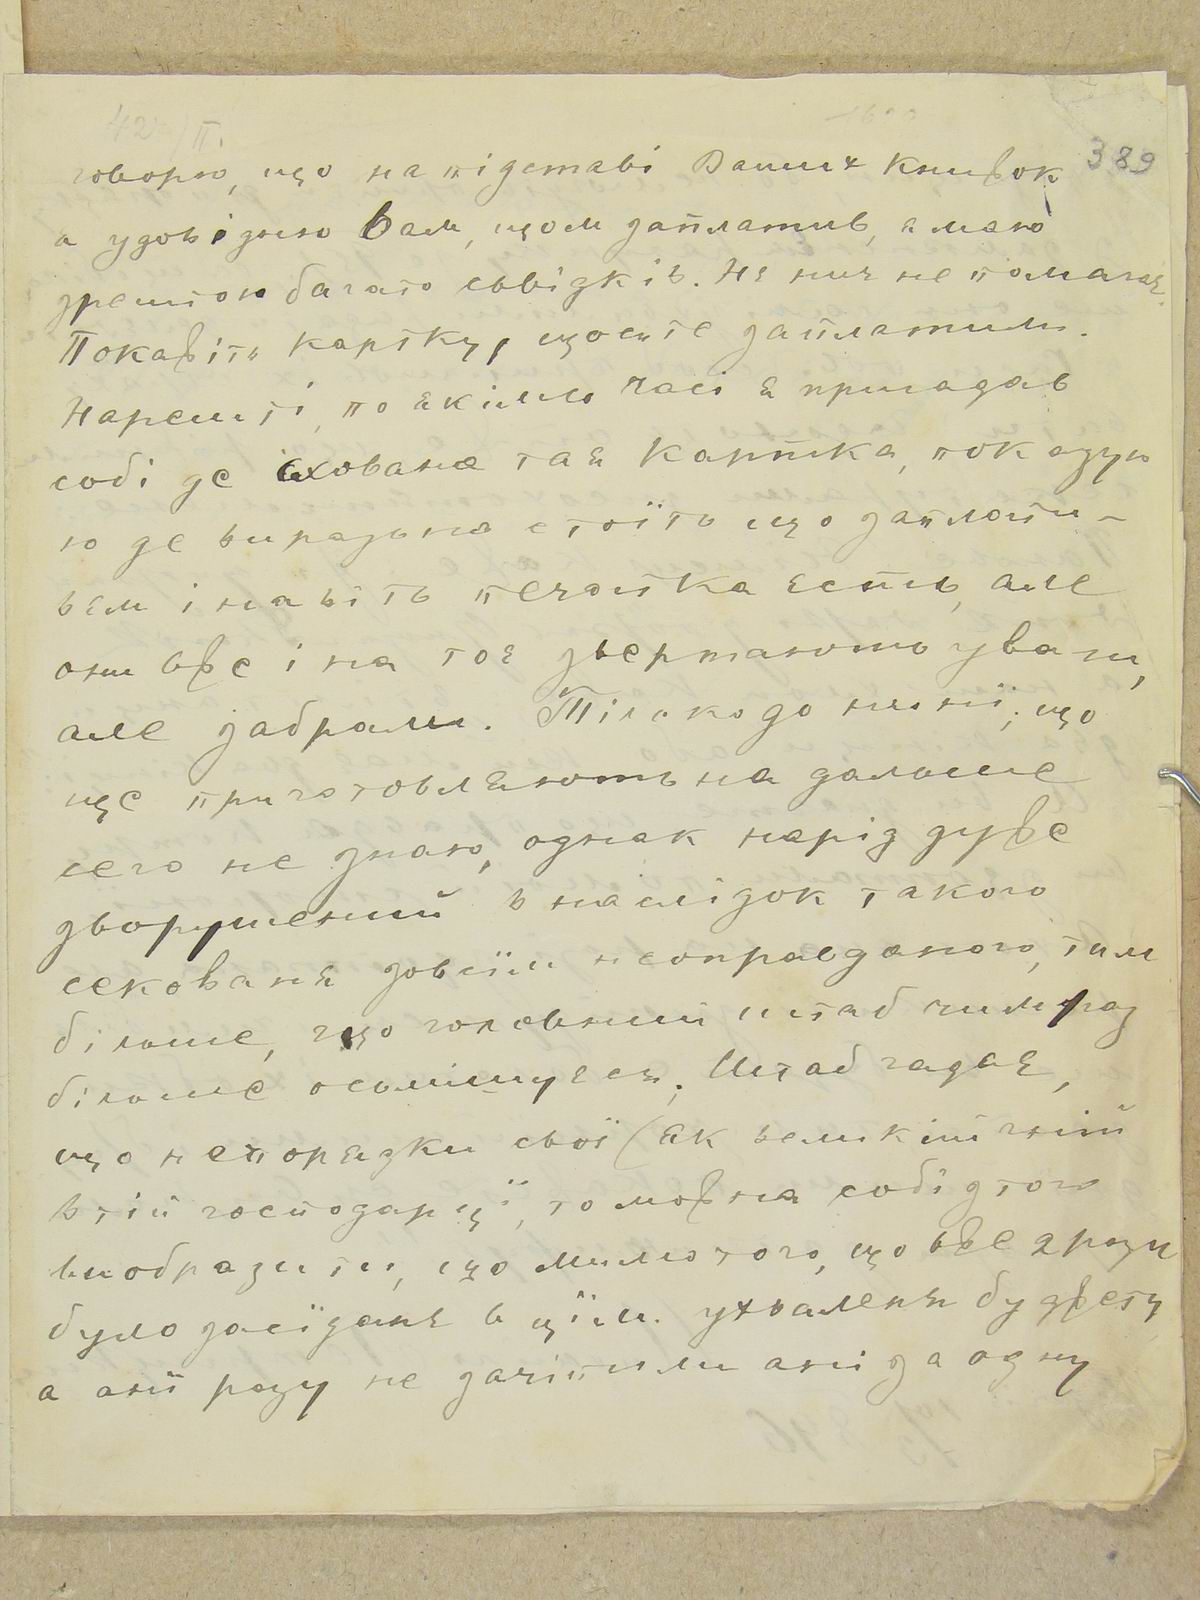 389
говорю, що на підставі Ваших книжок
а удовідню Вам, щом заплатив, а маю
зрештою багато сьвідків. Нє нич не помагає.
Покажіть картку, щосьте заплатили.
Нарешті, по якімсь часі я пригадав
собі де схована тая картка, показую
ю де виразьно стоїть що заплати-
вем і навіть печатка єсть, але
они вже і на тоє звертають уваги,
але забрали. Тілько до нинї; що
ще приготовляють на дальше
сего не знаю, однак нарід дуже
зворушений в наслідок такого
секованя зовсїм неоправданого, тим
більше, що головний штаб чим раз
більше осьмішуєся. Штаб гадає,
що непорядки свої (як великий гній
в тій господарцї, то можна собі з того
виобразити, що мимо того, що вже 2 рази
було засїданє в цїли ухваленя буджету
а анї разу не зачіпили анї за одну